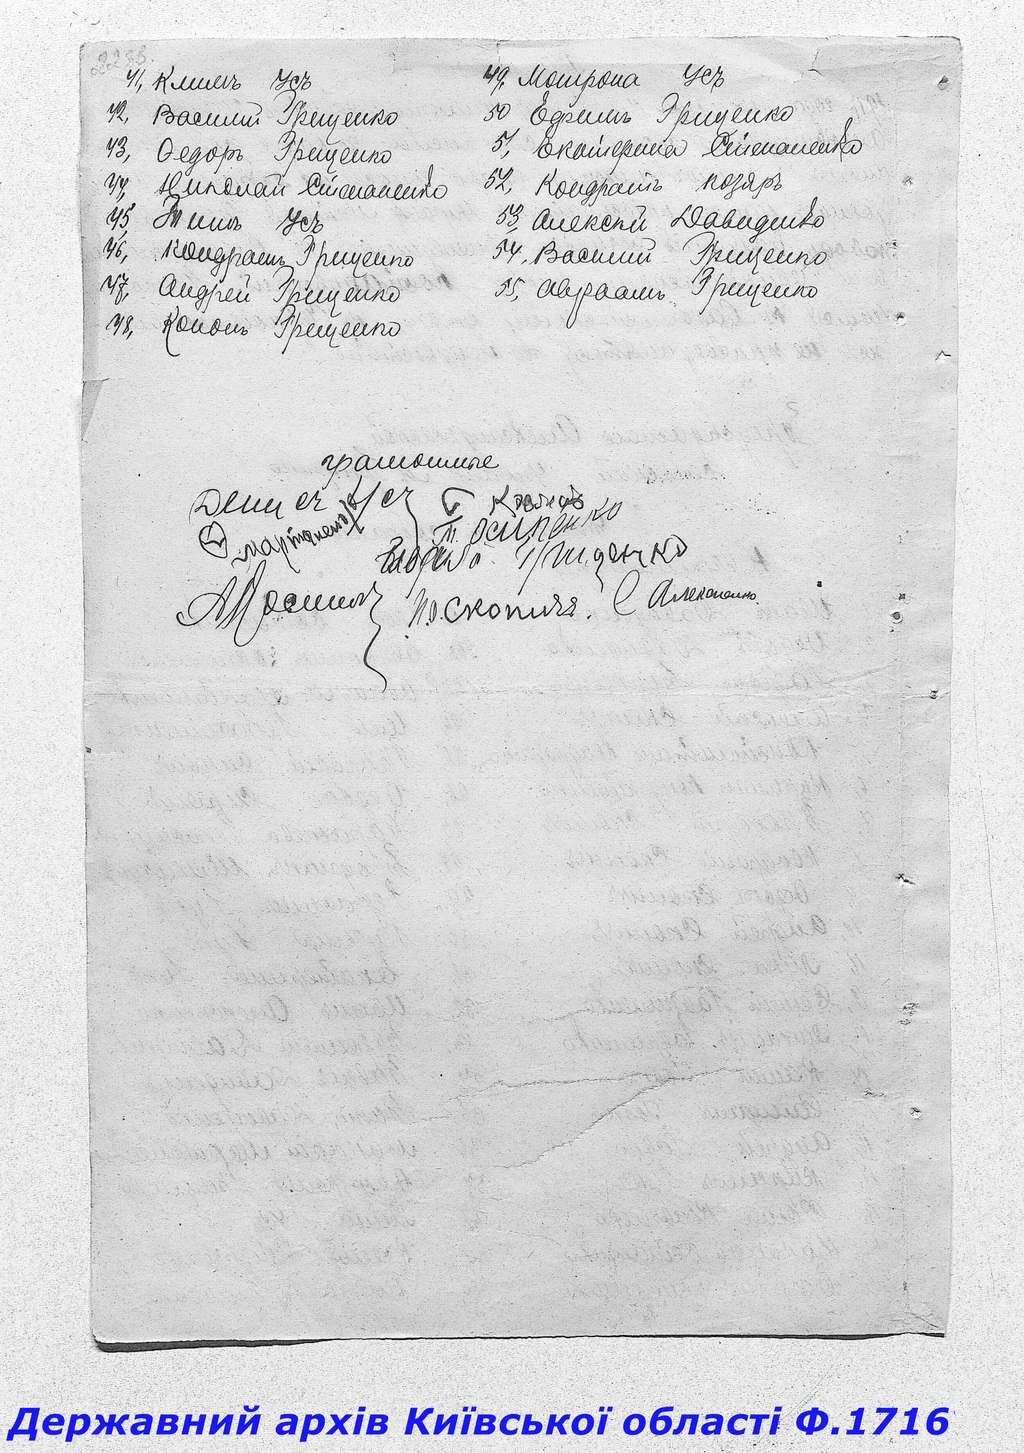 41, Климъ Усъ
42, Василий Грищенко
43, Федоръ Грищенко
44, Николай Степаненко
45, Тимъ Усъ
46, Кондратъ Грищенко
47, Андрей Грищенко
48, Кононъ Грищенко
49, Мотрона Усъ
50 Ефримъ Грищенко
51, Екатерина Степаненко
52, Кондратъ Козяръ
53, Алексѣй Давиденко
54, Василий Грищенко
55, Авраамъ Грищенко
грамотные
Денисъ Усъ
Осипенко
Грищенко
С Алексеенко
Державний архів Київської області Ф.1716